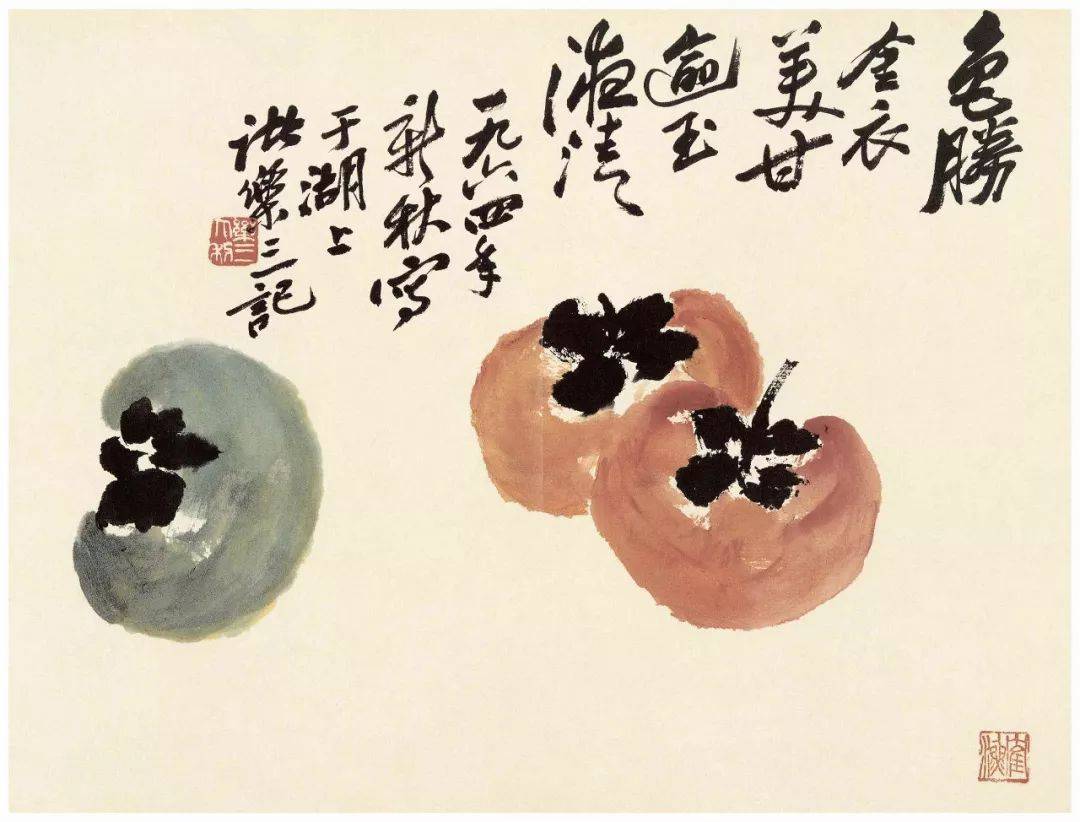 色勝
金衣
美甘
逾玉
液清
一九六四年
新秋寫
于湖上
諸樂三記
樂三